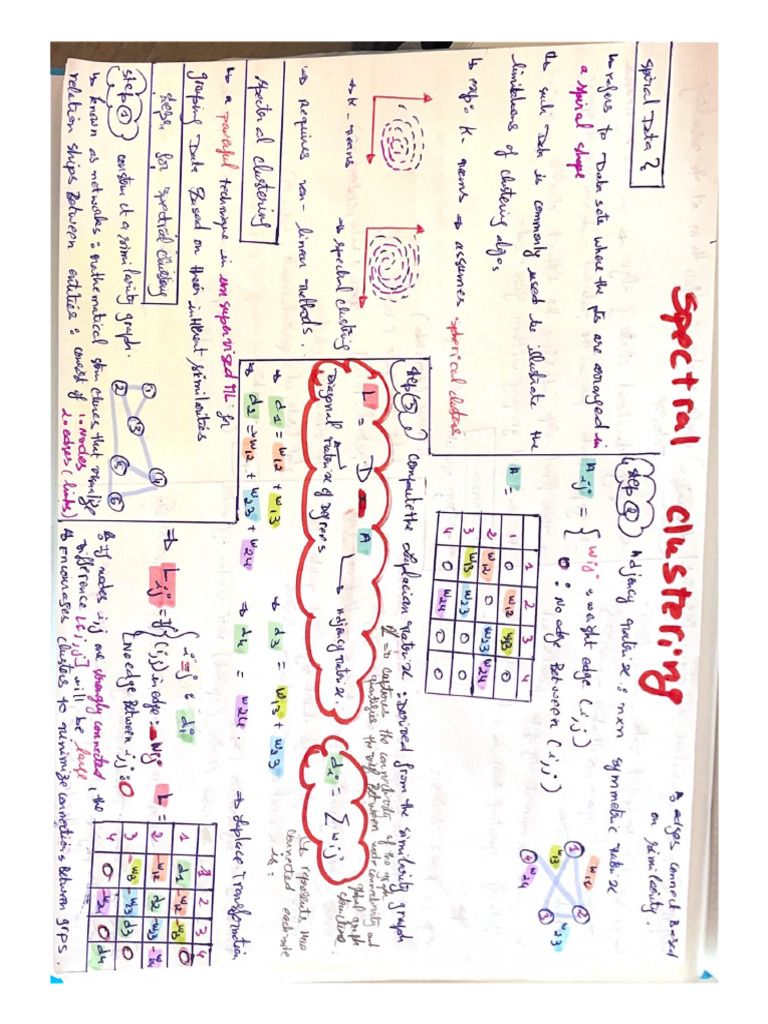 Spectral clustering
Spiral Data?
↳ refers to Data sets where the pts are arranged in
a spiral shape
↳ such Data is commonly used to illustrate the
limitations of clustering algos
↳ exp: K-means → assumes spherical clusters.
→ K-means
→ spectral clustering
→ Requires non-linear methods.
Spectral clustering
↳ a powerful technique in unsupervised ML for
grouping Data Based on their inherent similarities
steps for spectral clustering
step 1
construct a similarity graph.
↳ known as networks: mathematical structures that visualize
relation ships Between entities: consist of 1. Nodes
2. edges (links)
1
2
3
4
5
6
↳ edges connect Based
on similarity.
step 2
Adjacency matrix: nxn symmetric matrix
A ij = { wij : weight edge (i,j)
0 : No edge Between (i,j)
1
2
3
4
w12
w13
w23
w24
A =
1 2 3 4
1 0 w12 w13 0
2 w12 0 w23 w24
3 w13 w23 0 0
4 0 w24 0 0
step 3
Compute the Laplacian matrix: Derived from the similarity graph
→ captures the connectivity of the graph
quantifies the diff Between node connectivity and
global graph
structure.
L = D - A
Diagonal matrix of degrees
Adjacency matrix.
di = Σ wij
↳ represents how
connected each node
is:
→ d1 = w12 + w13
→ d2 = w12 + w23 + w24
→ d3 = w13 + w23
→ d4 = w24
→ Laplace Transformation
→ Lij = { i=j : di
(i,j) in edge: -wij
No edge Between i,j : 0
L =
1 2 3 4
1 d1 -w12 -w13 0
2 -w12 d2 -w23 -w24
3 -w13 -w23 d3 0
4 0 -w24 0 d4
↳ if nodes i,j are strongly connected, the
Difference L[i,j] will be large
↳ Encourages clusters to minimize connections Between grps.